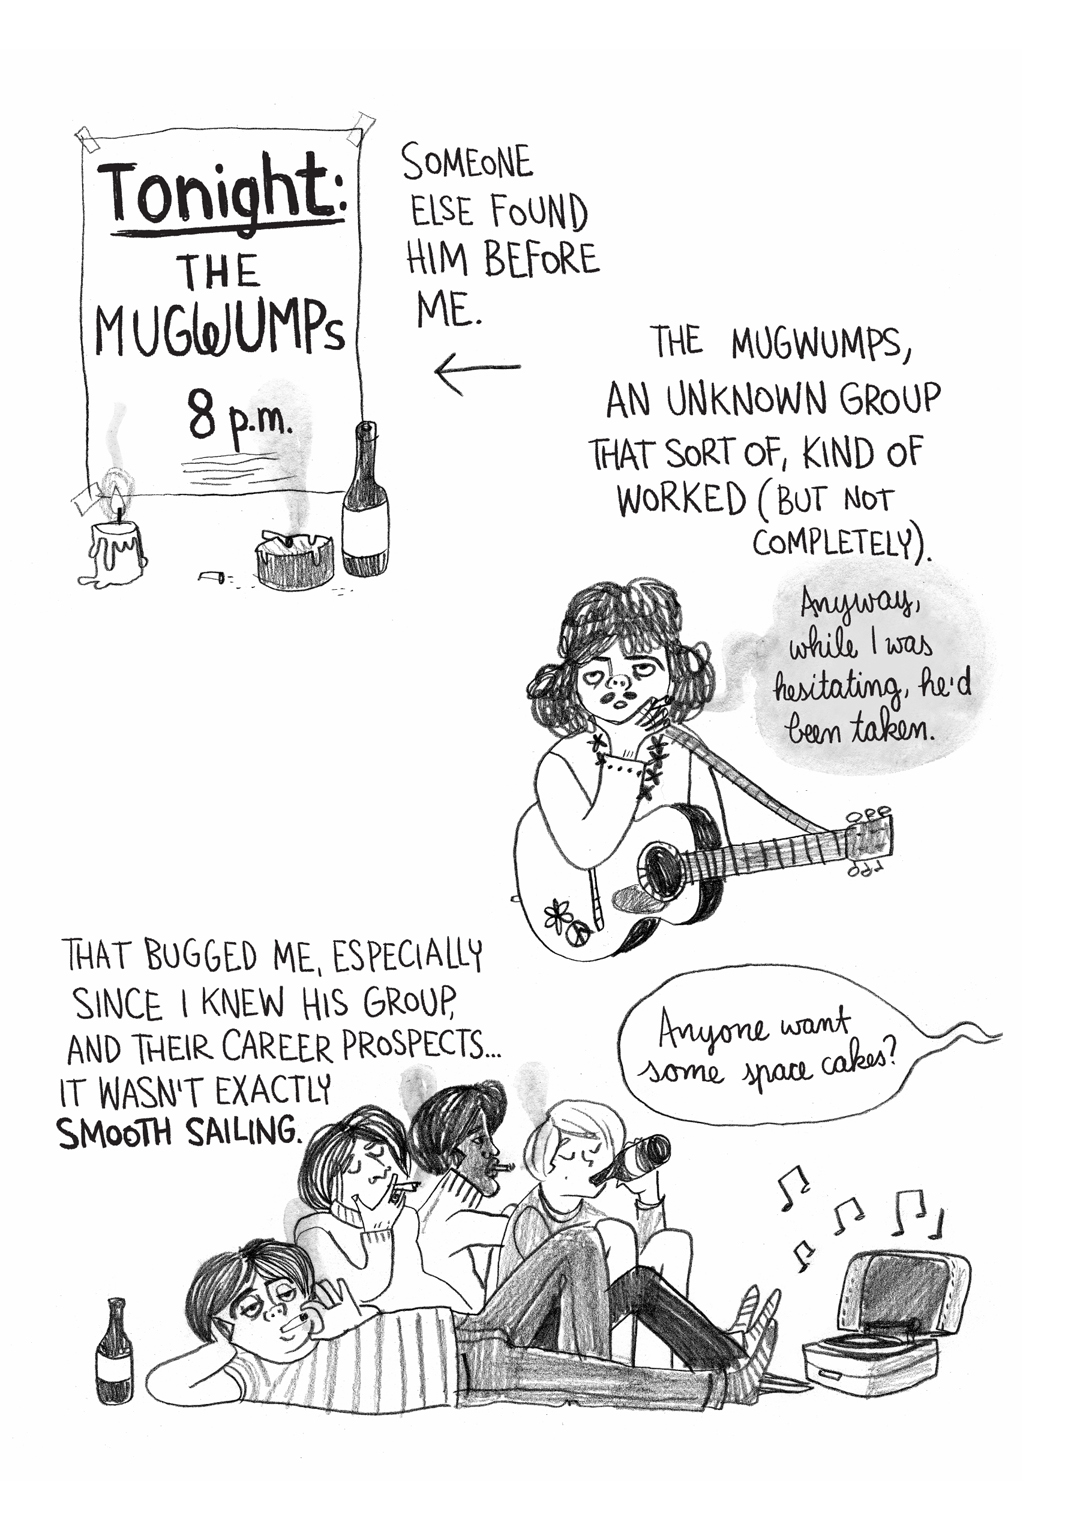 Tonight:
THE
MUGWUMPs
8 p.m.
SOMEONE
ELSE FOUND
HIM BEFORE
ME.
THE MUGWUMPS,
AN UNKNOWN GROUP
THAT SORT OF, KIND OF
WORKED (BUT NOT
COMPLETELY).
Anyway,
while I was
hesitating, he'd
been taken.
THAT BUGGED ME, ESPECIALLY
SINCE I KNEW HIS GROUP,
AND THEIR CAREER PROSPECTS...
IT WASN'T EXACTLY
SMOOTH SAILING.
Anyone want
some space cakes?